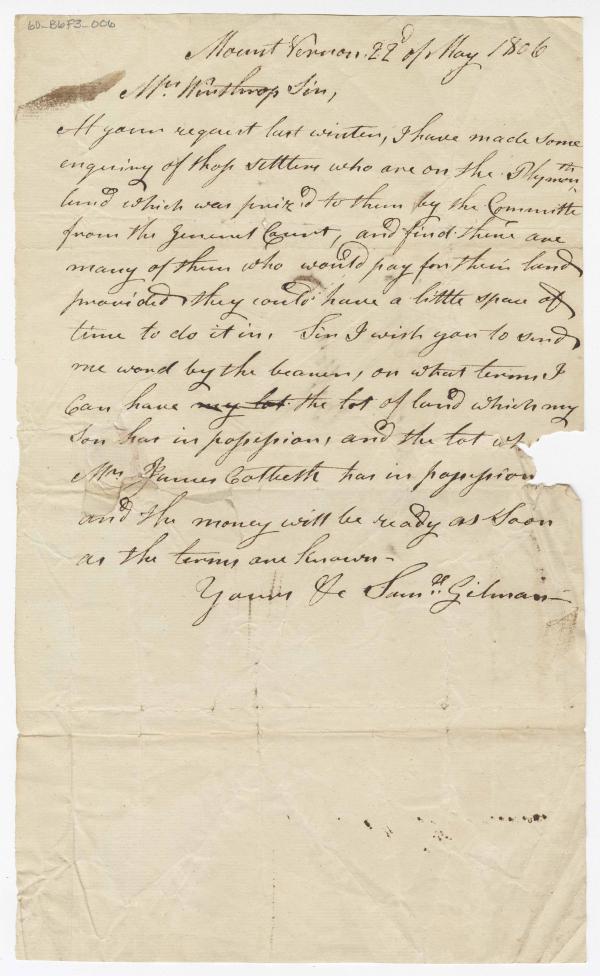 60_B6F3_006
Mount Vernon 22d of May 1806
Mr Winthrop Sir,
At your request last winter, I have made some
enquiry of thos settlers who are on the Plymouth
land which was priz'd to them by the Committe
from the General Court, and find there are
many of them who would pay for their land
provided they could have a little space of
time to do it in, Sir I wish you to send
me word by the bearer, on what terms I
Can have my lot the lot of land which my
Son has in possession, and the lot wh
Mr James Colbeth has in possession
and the money will be ready as Soon
as the terms are known—
Yours &c Samll Gilman—